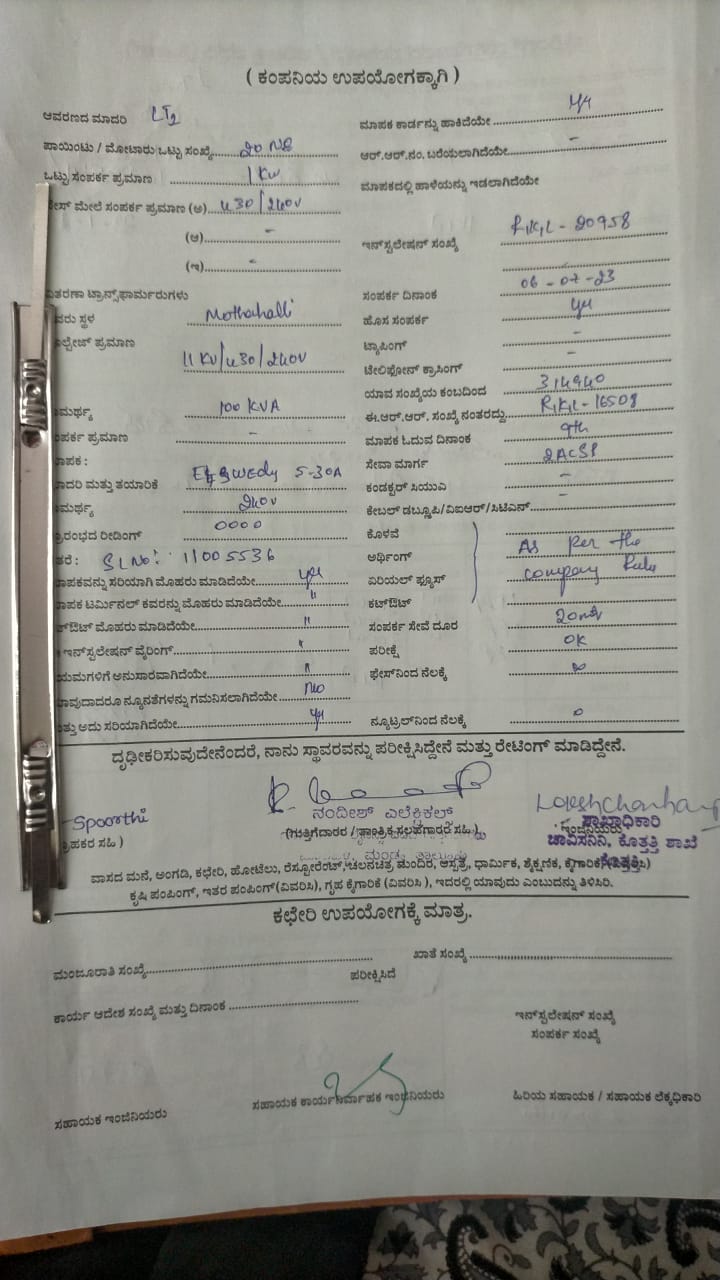 ( ಕಂಪನಿಯ ಉಪಯೋಗಕ್ಕಾಗಿ )
ಆವರಣದ ಮಾದರಿ LT2
ಮಾಪಕ ಕಾರ್ಡನ್ನು ಹಾಕಿದೆಯೇ
ಪಾಯಿಂಟು / ಮೋಟಾರು ಒಟ್ಟು ಸಂಖ್ಯೆ 20 No
ಆರ್.ಆರ್.ನಂ. ಬರೆಯಲಾಗಿದೆಯೇ -
ಒಟ್ಟು ಸಂಪರ್ಕ ಪ್ರಮಾಣ 1 KW
ಮಾಪಕದಲ್ಲಿ ಹಾಳೆಯನ್ನು ಇಡಲಾಗಿದೆಯೇ
ಮೇಲೆ ಸಂಪರ್ಕ ಪ್ರಮಾಣ (ಅ) 430/240V
(ಆ) -
ಇನ್‌ಸ್ಟಲೇಷನ್ ಸಂಖ್ಯೆ RKL - 20958
(ಇ) -
ವಿತರಣಾ ಟ್ರಾನ್ಸ್‌ಫಾರ್ಮರುಗಳು
ಸಂಪರ್ಕ ದಿನಾಂಕ 06-07-23
ಸ್ಥಳ Mothahalli
ಹೊಸ ಸಂಪರ್ಕ yes
ಪ್ರಮಾಣ 11 KV/430/240V
ಟ್ಯಾಪಿಂಗ್ -
ಟೇಲಿಫೋನ್ ಕ್ರಾಸಿಂಗ್ -
ಯಾವ ಸಂಖ್ಯೆಯ ಕಂಬದಿಂದ 314940
100 KVA
ಈ.ಆರ್.ಆರ್. ಸಂಖ್ಯೆ ನಂತರದ್ದು RKL-16508
ಪ್ರಮಾಣ -
ಮಾಪಕ ಓದುವ ದಿನಾಂಕ 9th
ಸೇವಾ ಮಾರ್ಗ 2ACSR
ಮತ್ತು ತಯಾರಿಕೆ 5-30A
ಕಂಡಕ್ಟರ್ ಸಿಯುವಿ -
240V
ಕೇಬಲ್ ಡಬ್ಲ್ಯೂಪಿ/ವಿಐಆರ್/ಸಿಟಿಎಸ್ -
ರೀಡಿಂಗ್ 0000
ಕೊಳವೆ
SL No: 11005536
ಅರ್ಥಿಂಗ್ As per the
ಸರಿಯಾಗಿ ಮೊಹರು ಮಾಡಿದೆಯೇ yes
ಏರಿಯಲ್ ಫ್ಯೂಸ್ company Rules
ಟರ್ಮಿನಲ್ ಕವರನ್ನು ಮೊಹರು ಮಾಡಿದೆಯೇ "
ಕಟ್‌ಔಟ್
ಮೊಹರು ಮಾಡಿದೆಯೇ "
ಸಂಪರ್ಕ ಸೇವೆ ದೂರ
ಇನ್‌ಸ್ಟಲೇಷನ್ ವೈರಿಂಗ್ "
ಪರೀಕ್ಷೆ OK
ಅನುಸಾರವಾಗಿದೆಯೇ "
ಫೇಸ್‌ನಿಂದ ನೆಲಕ್ಕೆ
ನ್ಯೂನತೆಗಳನ್ನು ಗಮನಿಸಲಾಗಿದೆಯೇ No
ಅದು ಸರಿಯಾಗಿದೆಯೇ yes
ನ್ಯೂಟ್ರಲ್‌ನಿಂದ ನೆಲಕ್ಕೆ 0
ದೃಢೀಕರಿಸುವುದೇನೆಂದರೆ, ನಾನು ಸ್ಥಾವರವನ್ನು ಪರೀಕ್ಷಿಸಿದ್ದೇನೆ ಮತ್ತು ರೇಟಿಂಗ್ ಮಾಡಿದ್ದೇನೆ.
Spoorthi
ನಂದೀಶ್ ಎಲೆಕ್ಟ್ರಿಕಲ್
ಶಾಖಾಧಿಕಾರಿ
ಸಹಿ )
(ಗುತ್ತಿಗೆದಾರರ / ತಾಂತ್ರಿಕ ಸಲಹೆಗಾರರ ಸಹಿ )
ಚಾವಿಸನಿನಿ, ಕೊತ್ತತ್ತಿ ಶಾಖೆ
ಕೊತ್ತತ್ತಿ
ವಾಸದ ಮನೆ, ಅಂಗಡಿ, ಕಛೇರಿ, ಹೋಟೆಲು, ರೆಸ್ಟೋರೆಂಟ್, ಚಲನಚಿತ್ರ ಮಂದಿರ, ಆಸ್ಪತ್ರೆ, ಧಾರ್ಮಿಕ, ಶೈಕ್ಷಣಿಕ, ಕೈಗಾರಿಕೆ (ವಿವರಿಸಿ)
ಕೃಷಿ ಪಂಪಿಂಗ್, ಇತರ ಪಂಪಿಂಗ್ (ವಿವರಿಸಿ), ಗೃಹ ಕೈಗಾರಿಕೆ (ವಿವರಿಸಿ ), ಇದರಲ್ಲಿ ಯಾವುದು ಎಂಬುದನ್ನು ತಿಳಿಸಿರಿ.
ಕಛೇರಿ ಉಪಯೋಗಕ್ಕೆ ಮಾತ್ರ.
ಮಂಜೂರಾತಿ ಸಂಖ್ಯೆ
ಖಾತೆ ಸಂಖ್ಯೆ
ಪರೀಕ್ಷಿಸಿದೆ
ಕಾರ್ಯ ಆದೇಶ ಸಂಖ್ಯೆ ಮತ್ತು ದಿನಾಂಕ
ಇನ್‌ಸ್ಟಲೇಷನ್ ಸಂಖ್ಯೆ
ಸಂಪರ್ಕ ಸಂಖ್ಯೆ
ಸಹಾಯಕ ಇಂಜಿನಿಯರು
ಸಹಾಯಕ ಕಾರ್ಯನಿರ್ವಾಹಕ ಇಂಜಿನಿಯರು
ಹಿರಿಯ ಸಹಾಯಕ / ಸಹಾಯಕ ಲೆಕ್ಕಧಿಕಾರಿ